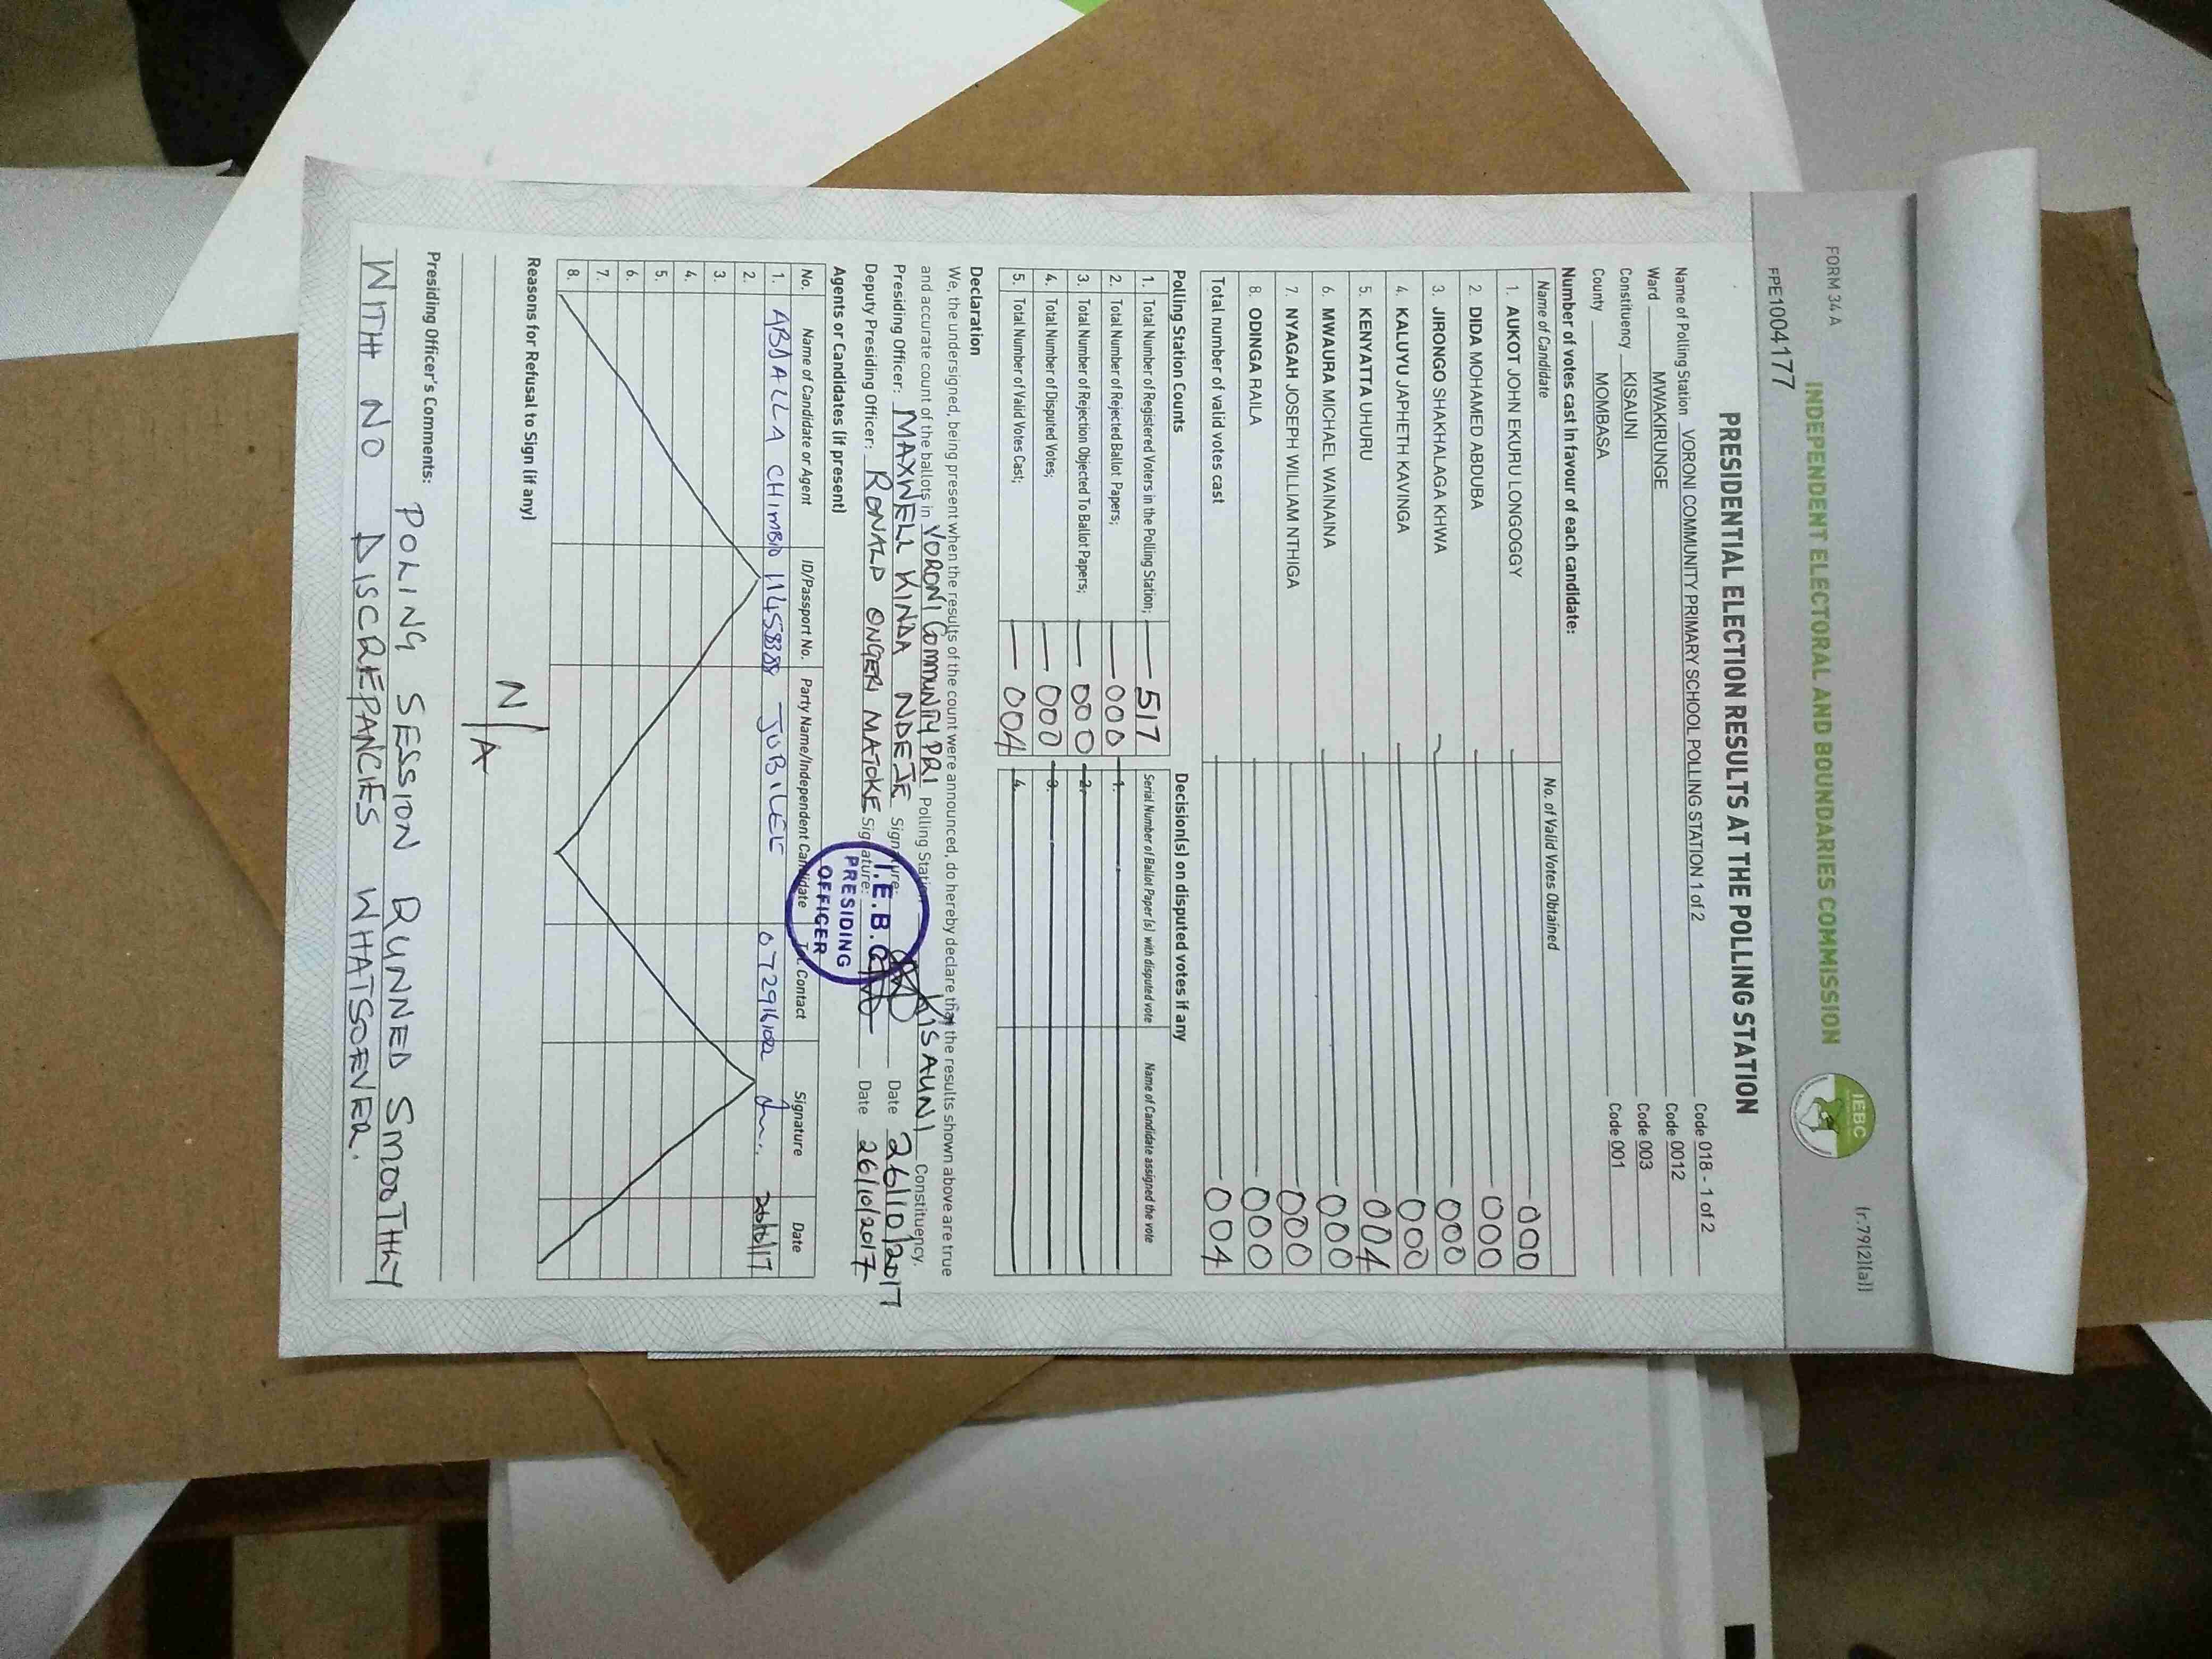 FORM 34 A
(r.79(2)(a))
INDEPENDENT ELECTORAL AND BOUNDARIES COMMISSION
IEBC
FPE1004177
PRESIDENTIAL ELECTION RESULTS AT THE POLLING STATION
Name of Polling Station VORONI COMMUNITY PRIMARY SCHOOL POLLING STATION 1 of 2 Code 018 - 1 of 2
Ward MWAKIRUNGE Code 0012
Constituency KISAUNI Code 003
County MOMBASA Code 001
Number of votes cast in favour of each candidate:
Name of Candidate No. of Valid Votes Obtained
1. AUKOT JOHN EKURU LONGOGGY 000
2. DIDA MOHAMED ABDUBA 000
3. JIRONGO SHAKHALAGA KHWA 000
4. KALUYU JAPHETH KAVINGA 000
5. KENYATTA UHURU 004
6. MWAURA MICHAEL WAINAINA 000
7. NYAGAH JOSEPH WILLIAM NTHIGA 000
8. ODINGA RAILA 000
Total number of valid votes cast 004
Polling Station Counts Decision(s) on disputed votes if any
1. Total Number of Registered Voters in the Polling Station; 517 Serial Number of Ballot Paper(s) with disputed vote Name of Candidate assigned the vote
2. Total Number of Rejected Ballot Papers; 000 1.
3. Total Number of Rejection Objected To Ballot Papers; 000 2.
4. Total Number of Disputed Votes; 000 3.
5. Total Number of Valid Votes Cast; 004 4.
Declaration
We, the undersigned, being present when the results of the count were announced, do hereby declare that the results shown above are true
and accurate count of the ballots in VORONI COMMUNITY PRI Polling Station KISAUNI Constituency.
Presiding Officer: MAXWELL KINDA NDEJE Signature: Date 26/10/2017
Deputy Presiding Officer: RONALD ONGERI MATOKE Signature: Date 26/10/2017
I.E.B.C
PRESIDING
OFFICER
Agents or Candidates (if present)
No. Name of Candidate or Agent ID/Passport No. Party Name/Independent Candidate Tel. Contact Signature Date
1. ABDALLA CHIMBIO JUBILEE
2.
3.
4.
5.
6.
7.
8.
Reasons for Refusal to Sign (if any)
N/A
Presiding Officer's Comments:
POLING SESSION RUNNED SMOOTHLY
WITH NO DISCREPANCIES WHATSOEVER.